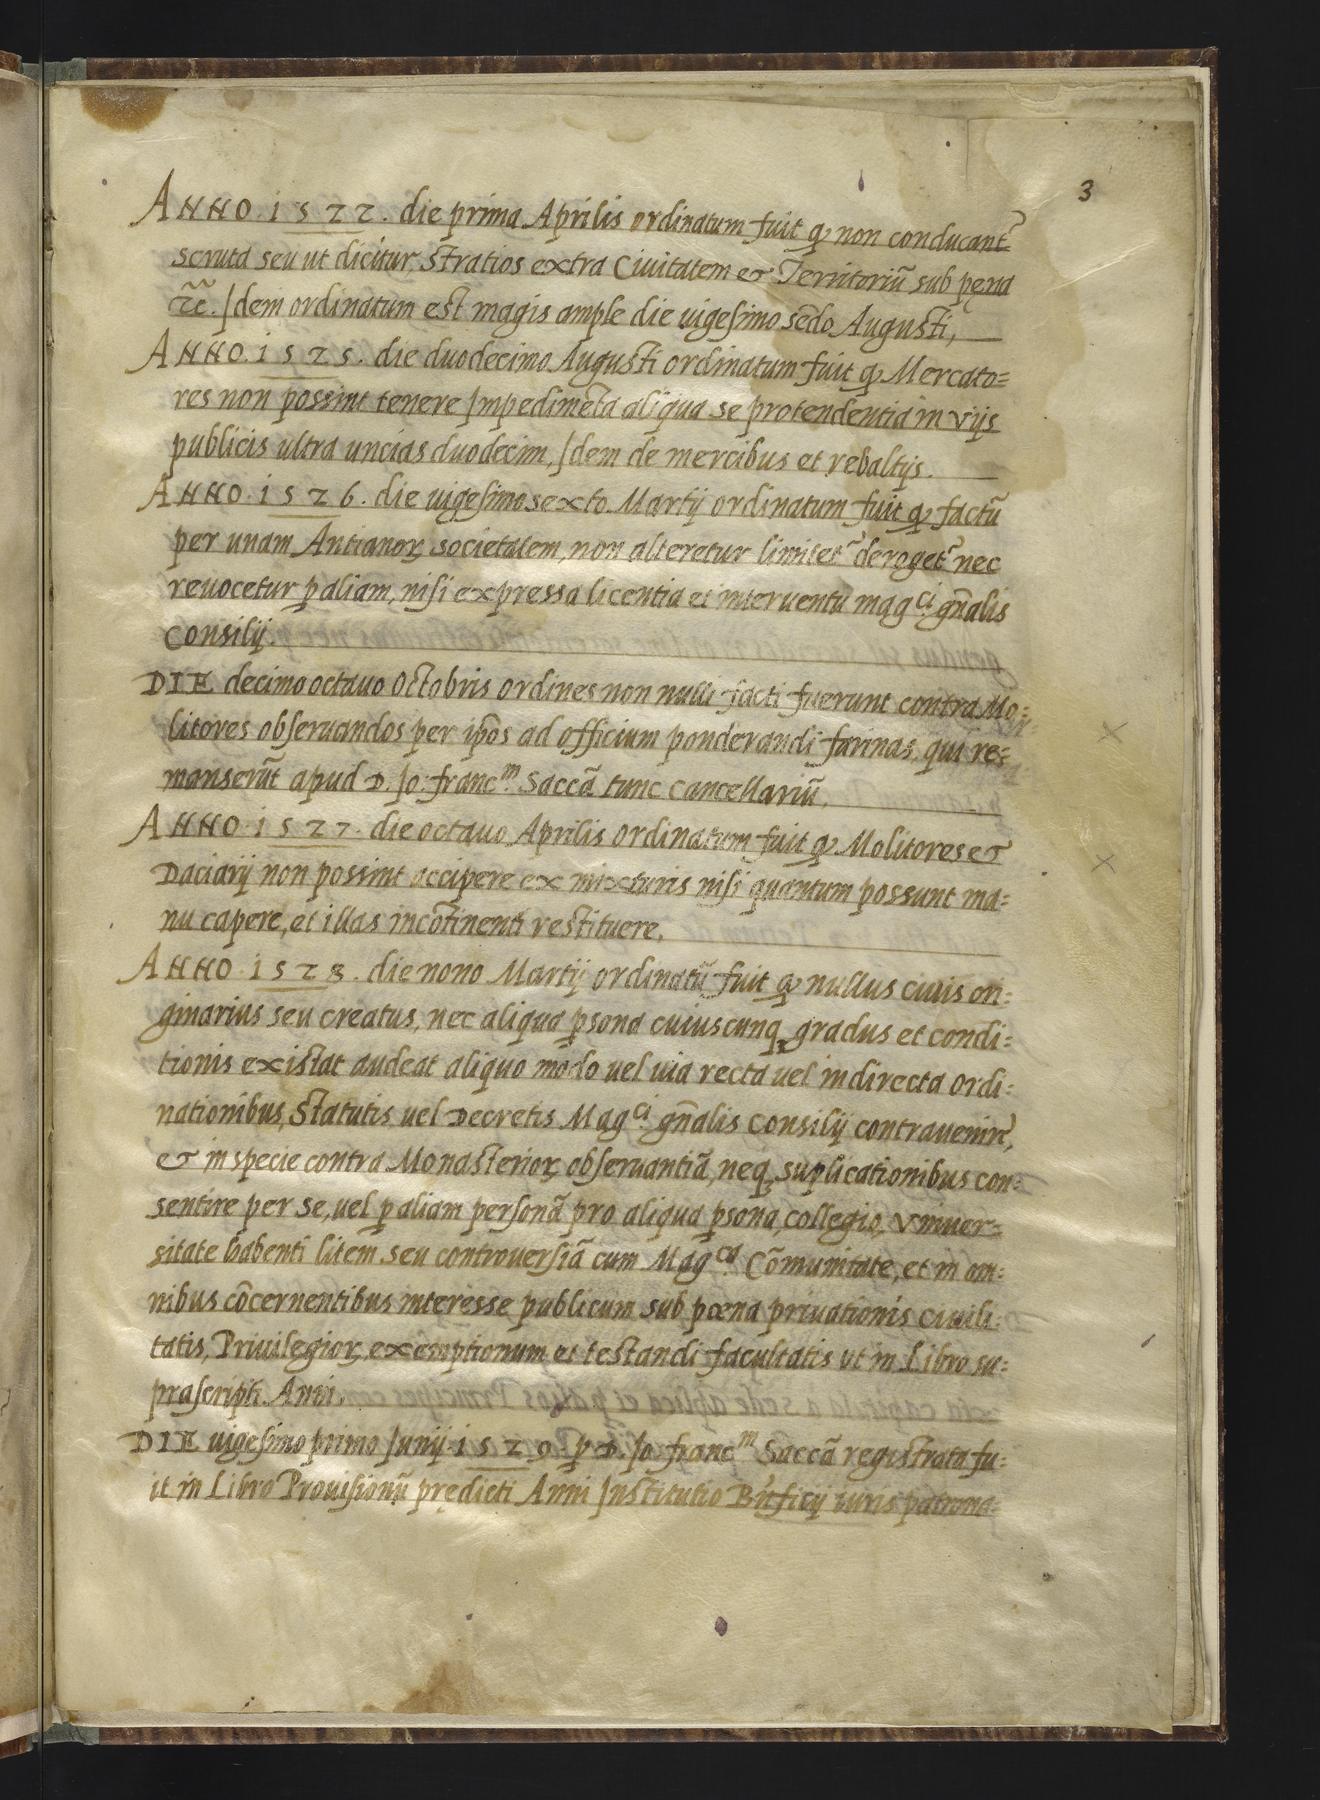 3
ANNO. 1522. die prima Aprilis ordinatum fuit ꝙ non conducant̃
scruta seu ut dicitur, Stratios extra Ciuitatem et Territoriũ sub pęna
&c̃. Idem ordinatum est magis ample die uigesimo sẽdo Augusti,
ANNO. 1525. die duodecimo Augusti ordinatum fuit ꝙ Mercato=
res non possint tenere Impedimẽta aliqua se protendentia in vijs
publicis ultra uncias duodecim, Idem de mercibus et rebaltijs.
ANNO. 1526. die uigesimosexto Martij ordinatum fuit ꝙ factũ
per unam Antianoꝝ societatem, non alteretur limitet̃ deroget̃ nec
reuocetur ꝑ aliam, nisi expressa licentia et interuentu magci. gñalis
Consilij.
DIE decimooctauo Octobris ordines non nulli facti fuerunt contra Mo=
litores obseruandos per ip̃os ad officium ponderandi farinas, qui re=
manserũt apud D. Jo: francm. Saccã tunc Cancellariũ.
ANNO. 1527. die octauo Aprilis ordinatum fuit ꝙ Molitores et
Daciarij non possint accipere ex mixturis nisi quantum possunt ma=
nu capere, et illas incõtinenti restituere.
ANNO. 1528. die nono Martij ordinatũ fuit ꝙ nullus ciuis ori=
ginarius seu creatus, nec aliqua ꝑsona cuiuscunqꝫ gradus et condi=
tionis existat audeat aliquo modo uel uia recta uel indirecta ordi=
nationibus, Statutis uel Decretis Magci. gñalis Consilij contrauenire,
et in specie contra Monasterioꝝ obseruantiã, neqꝫ suplicationibus con=
sentire per se, uel ꝑ aliam personã pro aliqua ꝑsona, collegio, vniuer=
sitate habenti litem seu controuersiã cum Magca. Cõmunitate, et in om=
nibus cõcernentibus interesse publicum sub pœna priuationis ciuili=
tatis, Priuilegioꝝ, exemptionum et testandi facultatis ut in Libro su=
prascripti Anni.
DIE uigesimo primo Junij. 1529. ꝑ D. Jo: francm. Saccã registrata fu=
it in Libro Prouisionũ prędicti Anni Institutio Bñficij iuris patrona=